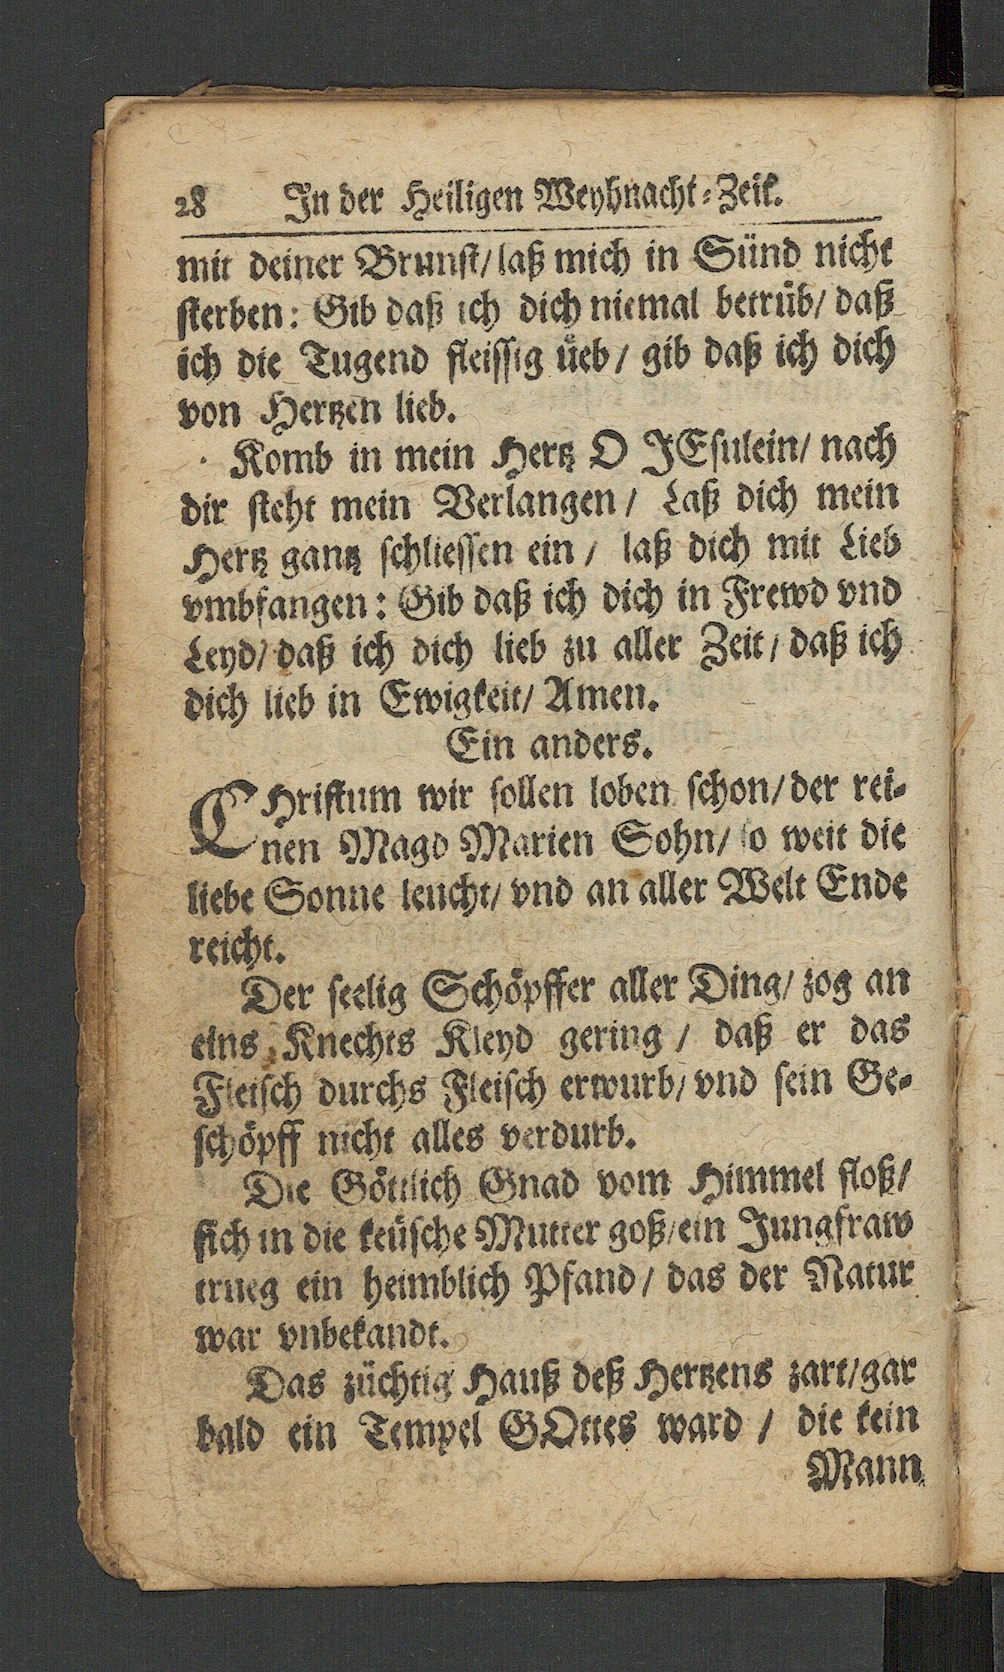 28 In der Heiligen Weyhnacht-Zeit.
mit deiner Brunst/ laß mich in Sünd nicht
sterben: Gib daß ich dich niemal betrüb/ daß
ich die Tugend fleissig üeb/ gib daß ich dich
von Hertzen lieb.
Komb in mein Hertz O JEsulein/ nach
dir steht mein Verlangen/ Laß dich mein
Hertz gantz schliessen ein/ laß dich mit Lieb
vmbfangen: Gib daß ich dich in Frewd vnd
Leyd/ daß ich dich lieb zu aller Zeit/ daß ich
dich lieb in Ewigkeit/ Amen.
Ein anders.
CHristum wir sollen loben schon/ der rei-
nen Magd Marien Sohn/ so weit die
liebe Sonne leucht/ vnd an aller Welt Ende
reicht.
Der seelig Schöpffer aller Ding/ zog an
eins Knechts Kleyd gering/ daß er das
Fleisch durchs Fleisch erwurb/ vnd sein Ge-
schöpff nicht alles verdurb.
Die Göttlich Gnad vom Himmel floß/
sich in die keüsche Mutter goß/ ein Jungfraw
trueg ein heimblich Pfand/ das der Natur
war vnbekandt.
Das züchtig Hauß deß Hertzens zart/ gar
bald ein Tempel GOttes ward/ die kein
Mann